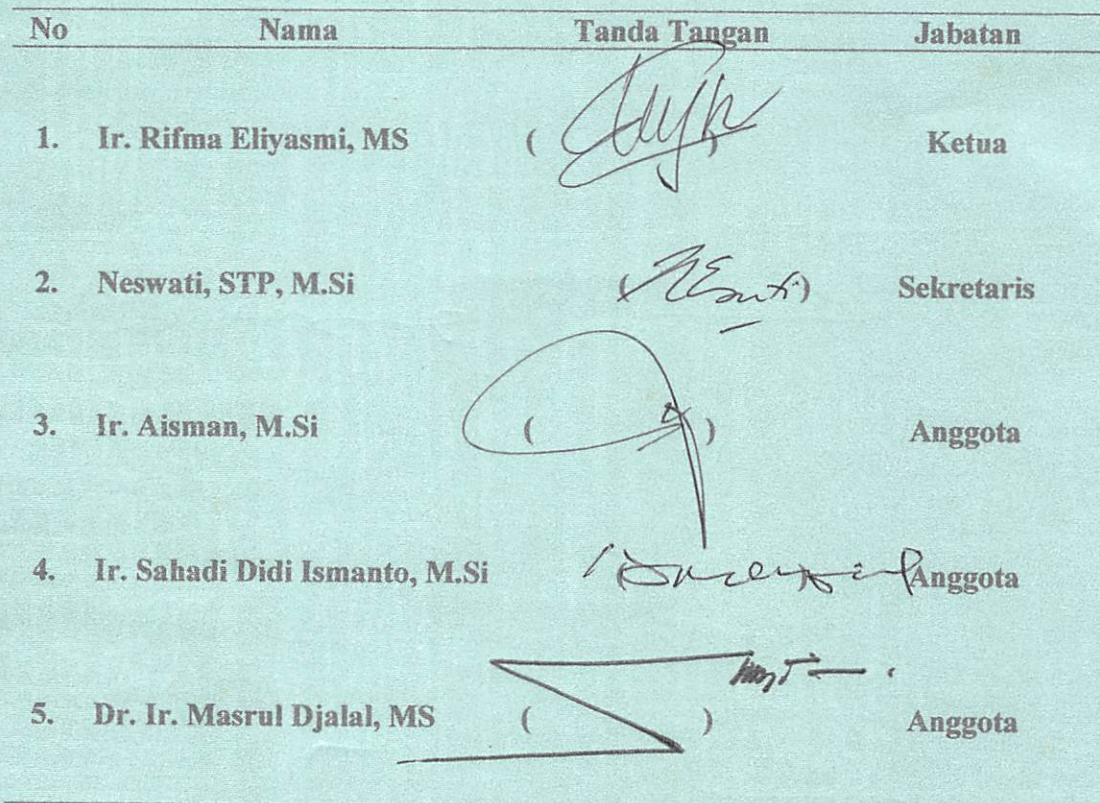 No Nama Tanda Tangan Jabatan
1. Ir. Rifma Eliyasmi, MS ( ) Ketua
2. Neswati, STP, M.Si ( ) Sekretaris
3. Ir. Aisman, M.Si ( ) Anggota
4. Ir. Sahadi Didi Ismanto, M.Si Anggota
5. Dr. Ir. Masrul Djalal, MS ( ) Anggota